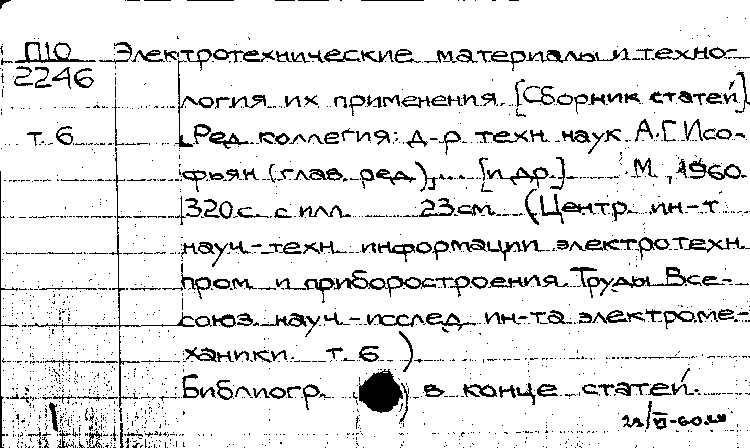 П10 Электротехнические материалы и техно-
2246
логия их применения. [Сборник статей].
т. 6 [Ред. коллегия: д-р техн. наук А.Г. Исо-
фьян (глав. ред.),... [и др.]. М., 1960.
320 с. с илл. 23 см. (Центр. ин-т
науч.-техн. информации электротехн.
пром. и приборостроения. Труды Все-
союз. науч.-исслед. ин-та электроме-
ханики. т. 6).
Библиогр. в конце статей.